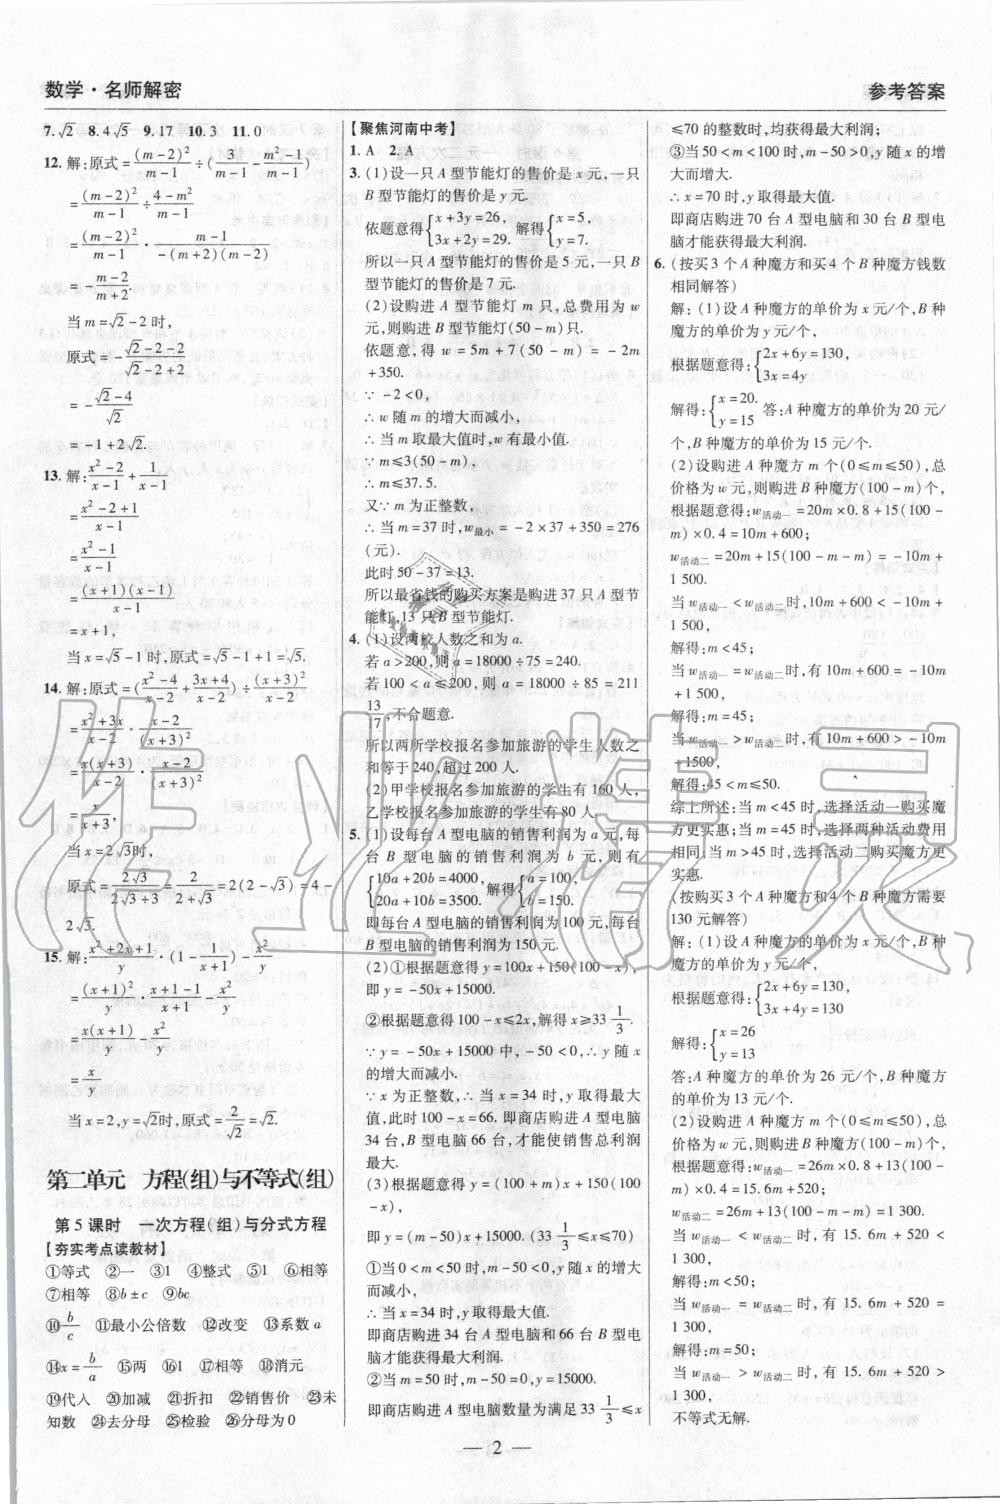 数学·名师解密
参考答案
7.√2 8.4√5 9.17 10.3 11.0
12.解:原式=(m-2)²/(m-1)÷(3/(m-1)-(m²-1)/(m-1))
=(m-2)²/(m-1)÷(4-m²)/(m-1)
=(m-2)²/(m-1)·(m-1)/(-(m+2)(m-2))
=-(m-2)/(m+2).
当m=√2-2时,
原式=-(√2-2-2)/(√2-2+2)
=-(√2-4)/√2
=-1+2√2.
13.解:(x²-2)/(x-1)+1/(x-1)
=(x²-2+1)/(x-1)
=(x²-1)/(x-1)
=(x+1)(x-1)/(x-1)
=x+1,
当x=√5-1时,原式=√5-1+1=√5.
14.解:原式=((x²-4)/(x-2)+(3x+4)/(x-2))÷(x+3)²/(x-2)
=(x²+3x)/(x-2)·(x-2)/(x+3)²
=x(x+3)/(x-2)·(x-2)/(x+3)²
=x/(x+3),
当x=2√3时,
原式=2√3/(2√3+3)=2/(2+√3)=2(2-√3)=4-
2√3.
15.解:(x²+2x+1)/y·(1-1/(x+1))-x²/y
=(x+1)²/y·(x+1-1)/(x+1)-x²/y
=x(x+1)/y-x²/y
=x/y
当x=2,y=√2时,原式=2/√2=√2.
第二单元 方程(组)与不等式(组)
第5课时 一次方程(组)与分式方程
【夯实考点读教材】
①等式 ②一 ③1 ④整式 ⑤1 ⑥相等
⑦相等 ⑧b±c ⑨bc
⑩b/c ⑪最小公倍数 ⑫改变 ⑬系数a
⑭x=b/a ⑮两 ⑯1 ⑰相等 ⑱消元
⑲代入 ⑳加减 ㉑折扣 ㉒销售价 ㉓未
知数 ㉔去分母 ㉕检验 ㉖分母为0
【聚焦河南中考】
1.A 2.A
3.(1)设一只A型节能灯的售价是x元,一只
B型节能灯的售价是y元.
依题意得{x+3y=26, 3x+2y=29. 解得{x=5, y=7.
所以一只A型节能灯的售价是5元,一只
B型节能灯的售价是7元.
(2)设购进A型节能灯m只,总费用为w
元,则购进B型节能灯(50-m)只.
依题意,得w=5m+7(50-m)=-2m
+350.
∵-2<0,
∴w随m的增大而减小,
∴当m取最大值时,w有最小值.
∵m≤3(50-m),
∴m≤37.5.
又∵m为正整数,
∴当m=37时,w最小=-2×37+350=276
(元).
此时50-37=13.
所以最省钱的购买方案是购进37只A型节
能灯,13只B型节能灯.
4.(1)设两校人数之和为a.
若a>200,则a=18000÷75=240.
若100<a≤200,则a=18000÷85=211
13/17,不合题意.
所以两所学校报名参加旅游的学生人数之
和等于240,超过200人.
(2)甲学校报名参加旅游的学生有160人,
乙学校报名参加旅游的学生有80人.
5.(1)设每台A型电脑的销售利润为a元,每
台B型电脑的销售利润为b元,则有
{10a+20b=4000, 20a+10b=3500. 解得{a=100, b=150.
即每台A型电脑的销售利润为100元,每台
B型电脑的销售利润为150元.
(2)①根据题意得y=100x+150(100-x),
即y=-50x+15000.
②根据题意得100-x≤2x,解得x≥33 1/3.
∵y=-50x+15000中,-50<0,∴y随x
的增大而减小.
∵x为正整数,∴当x=34时,y取得最大
值,此时100-x=66.即商店购进A型电脑
34台,B型电脑66台,才能使销售总利润
最大.
(3)根据题意得y=(100+m)x+150(100
-x),
即y=(m-50)x+15000.(33 1/3≤x≤70)
①当0<m<50时,m-50<0,y随x的增大
而减小,
∴当x=34时,y取得最大值.
即商店购进34台A型电脑和66台B型电
脑才能获得最大利润.
②当m=50时,m-50=0,y=15000.
即商店购进A型电脑数量为满足33 1/3≤x
≤70的整数时,均获得最大利润;
③当50<m<100时,m-50>0,y随x的增
大而增大.
∴x=70时,y取得最大值.
即商店购进70台A型电脑和30台B型电
脑才能获得最大利润.
6.(按买3个A种魔方和买4个B种魔方钱数
相同解答)
解:(1)设A种魔方的单价为x元/个,B种
魔方的单价为y元/个,
根据题意得:{2x+6y=130, 3x=4y
解得:{x=20. y=15 答:A种魔方的单价为20元/
个,B种魔方的单价为15元/个.
(2)设购进A种魔方m个(0≤m≤50),总
价格为w元,则购进B种魔方(100-m)个,
根据题意得:w活动一=20m×0.8+15(100-
m)×0.4=10m+600;
w活动二=20m+15(100-m-m)=-10m+
1 500.
当w活动一<w活动二时,有10m+600<-10m+
1 500,
解得:m<45;
当w活动一=w活动二时,有10m+600=-10m
+1 500,
解得:m=45;
当w活动一>w活动二时,有10m+600>-10m
+1500,
解得:45<m≤50.
综上所述:当m<45时,选择活动一购买魔
方更实惠;当m=45时,选择两种活动费用
相同;当m>45时,选择活动二购买魔方更
实惠.
(按购买3个A种魔方和4个B种魔方需要
130元解答)
解:(1)设A种魔方的单价为x元/个,B种
魔方的单价为y元/个,
根据题意得:{2x+6y=130, 3x+4y=130
解得:{x=26 y=13
答:A种魔方的单价为26元/个,B种魔方的
单价为13元/个.
(2)设购进A种魔方m个(0≤m≤50),总
价格为w元,则购进B种魔方(100-m)个,
根据题意得:w活动一=26m×0.8+13(100-
m)×0.4=15.6m+520;
w活动二=26m+13(100-m-m)=1 300.
当w活动一<w活动二时,有15.6m+520<
1 300,
解得:m<50;
当w活动一=w活动二时,有15.6m+520=
1 300,
解得:m=50;
当w活动一>w活动二时,有15.6m+520>
1 300,
不等式无解.
— 2 —
作业精灵